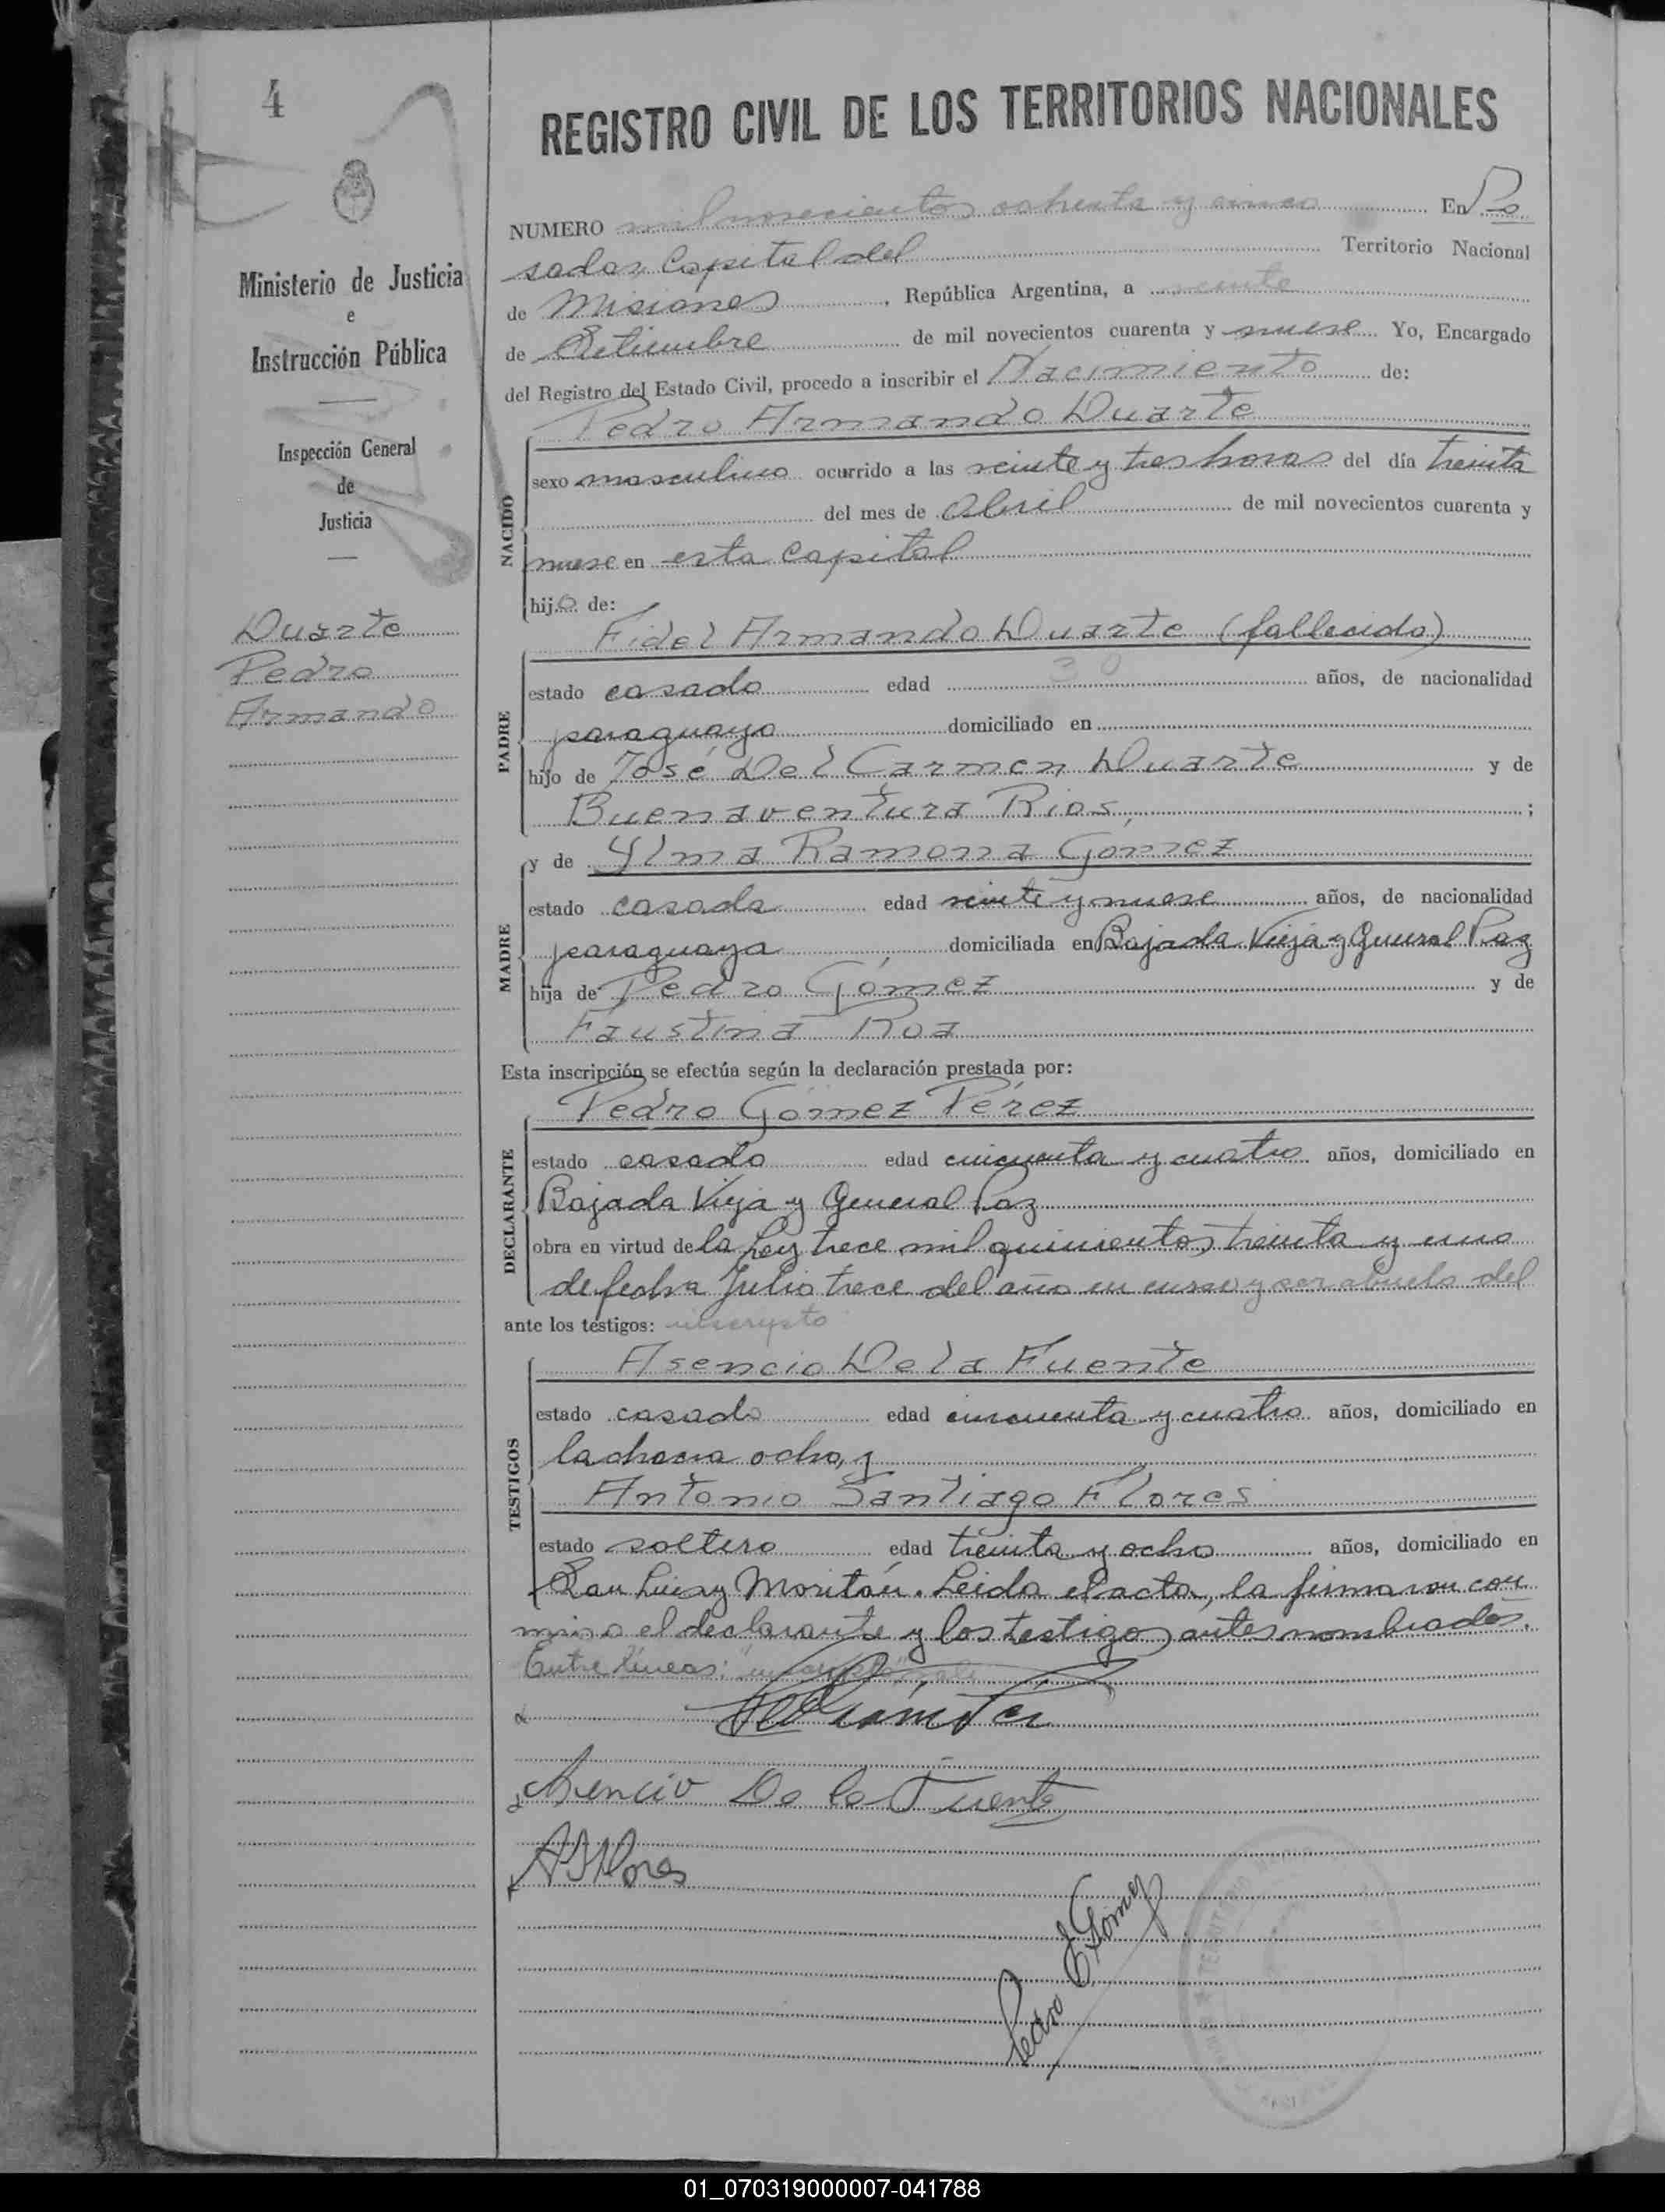 4
REGISTRO CIVIL DE LOS TERRITORIOS NACIONALES
Ministerio de Justicia
e
Instrucción Pública
Inspección General
de
Justicia
Duarte
Pedro
Armando
NUMERO mil novecientos ochenta y cinco En Po
sadas Capital del Territorio Nacional
de Misiones, República Argentina, a veinte
de Setiembre de mil novecientos cuarenta y nueve Yo, Encargado
del Registro del Estado Civil, procedo a inscribir el Nacimiento de:
NACIDO
Pedro Armando Duarte
sexo masculino ocurrido a las veinte y tres horas del día treinta
del mes de Abril de mil novecientos cuarenta y
nueve en esta Capital
hijo de:
PADRE
Fidel Armando Duarte (fallecido)
estado casado edad 30 años, de nacionalidad
paraguayo domiciliado en
hijo de José Del Carmen Duarte y de
Buenaventura Rios ;
MADRE
y de Ylma Ramona Gómez
estado casada edad veinte y nueve años, de nacionalidad
paraguaya domiciliada en Bajada Vieja y General Paz
hija de Pedro Gómez y de
Faustina Roa
Esta inscripción se efectúa según la declaración prestada por:
DECLARANTE
Pedro Gómez Pérez
estado casado edad cincuenta y cuatro años, domiciliado en
Bajada Vieja y General Paz
obra en virtud de la Ley trece mil quinientos treinta y uno
de fecha Julio trece del año en curso y ser abuelo del
ante los testigos: inscripto
TESTIGOS
Asencio De la Fuente
estado casado edad cincuenta y cuatro años, domiciliado en
la chacra ocho, y
Antonio Santiago Flores
estado soltero edad treinta y ocho años, domiciliado en
San Luis y Moritán. Leida el acta, la firmaron con
migo el declarante y los testigos antes nombrados.
Entre lineas: "inscripto" vale
Asencio De la Fuente
A S Flores
Pedro E. Gómez
01_070319000007-041788